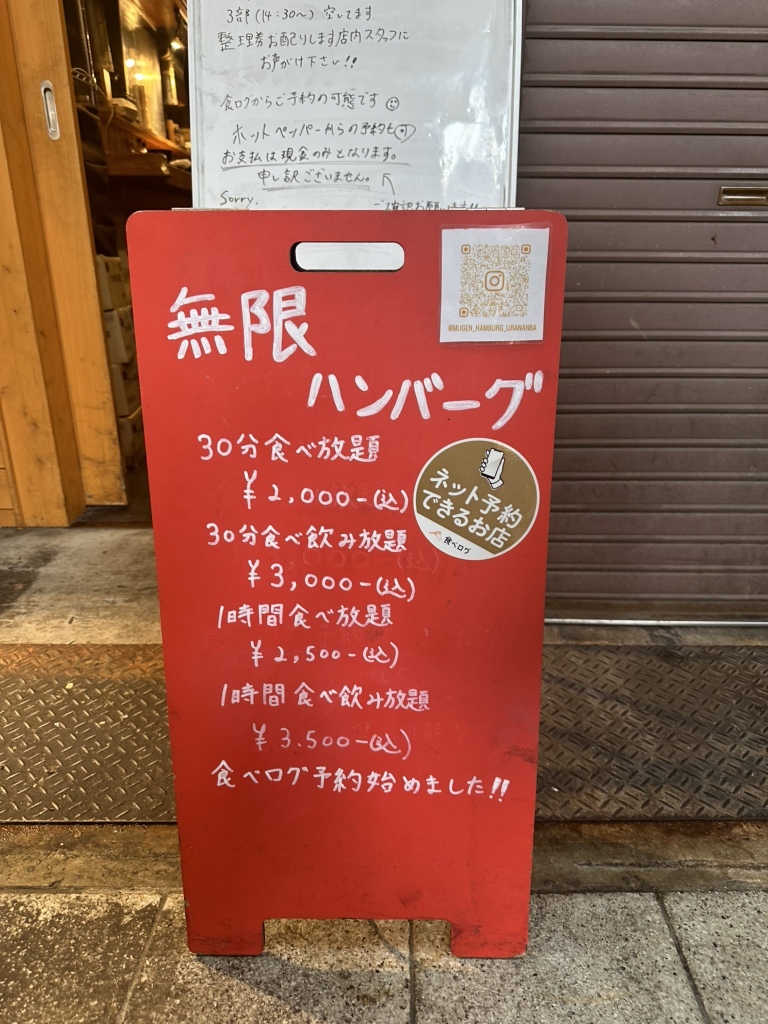 3部(14:30〜)空してます
整理券お配りします店内スタッフに
お声がけ下さい!!
食ログからご予約の可能です
ホットペッパーからの予約も可
お支払は現金のみとなります。
申し訳ございません。
Sorry.
ご確認お願います!!
@MUGEN_HAMBURG_URANANBA
無限
ハンバーグ
30分食べ放題
¥2,000-(込)
30分食べ飲み放題
¥3,000-(込)
1時間食べ放題
¥2,500-(込)
1時間食べ飲み放題
¥3.500-(込)
食べログ予約始めました!!
ネット予約
できるお店
食べログ